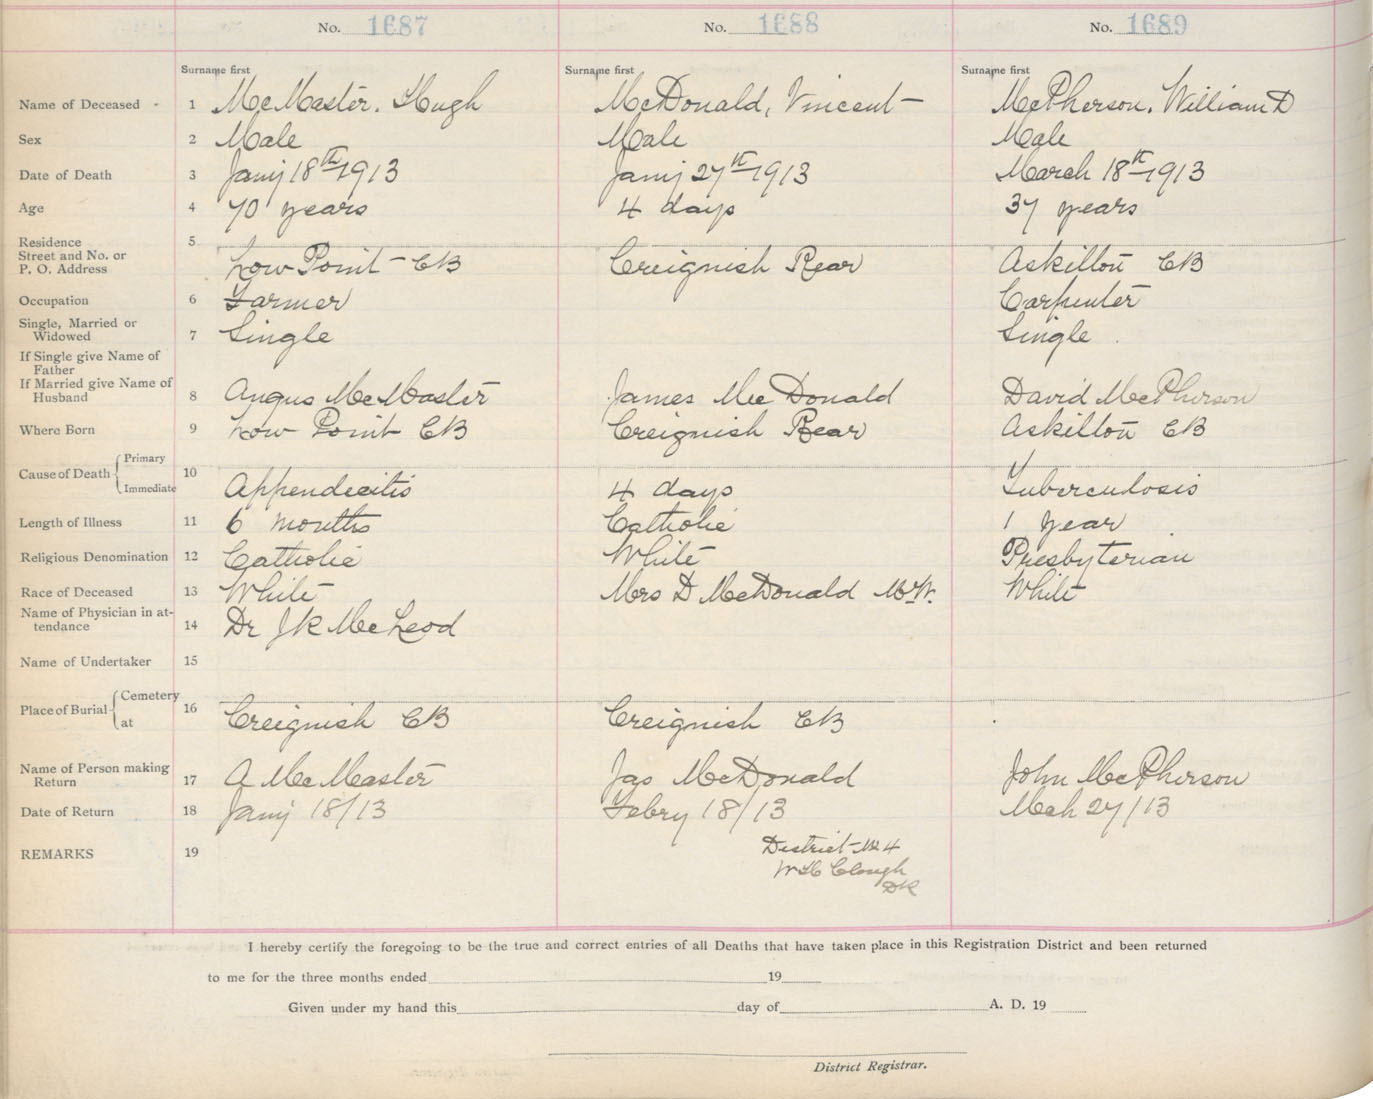 No. 1687 No. 1688 No. 1689
Surname first Surname first Surname first
Name of Deceased - 1 McMaster, Hugh McDonald, Vincent McPherson, William D
Sex 2 Male Male Male
Date of Death 3 Jany 18th 1913 Jany 27th 1913 March 18th 1913
Age 4 70 years 4 days 37 years
Residence 5
Street and No. or
P. O. Address Low Point CB Creignish Rear Askilton CB
Occupation 6 Farmer Carpenter
Single, Married or
Widowed 7 Single Single
If Single give Name of
Father
If Married give Name of
Husband 8 Angus McMaster James McDonald David McPherson
Where Born 9 Low Point CB Creignish Rear Askilton CB
Cause of Death Primary 10
Immediate Appendecitis 4 days Tuberculosis
Length of Illness 11 6 months Catholic 1 year
Religious Denomination 12 Catholic White Presbyterian
Race of Deceased 13 White Mrs D McDonald MW. White
Name of Physician in at-
tendance 14 Dr JK McLeod
Name of Undertaker 15
Place of Burial Cemetery 16
at Creignish CB Creignish CB
Name of Person making
Return 17 A McMaster Jas McDonald John McPherson
Date of Return 18 Jany 18/13 Febry 18/13 Mch 27/13
REMARKS 19 District No 4
W H Clough
DR
I hereby certify the foregoing to be the true and correct entries of all Deaths that have taken place in this Registration District and been returned
to me for the three months ended 19
Given under my hand this day of A. D. 19
District Registrar.